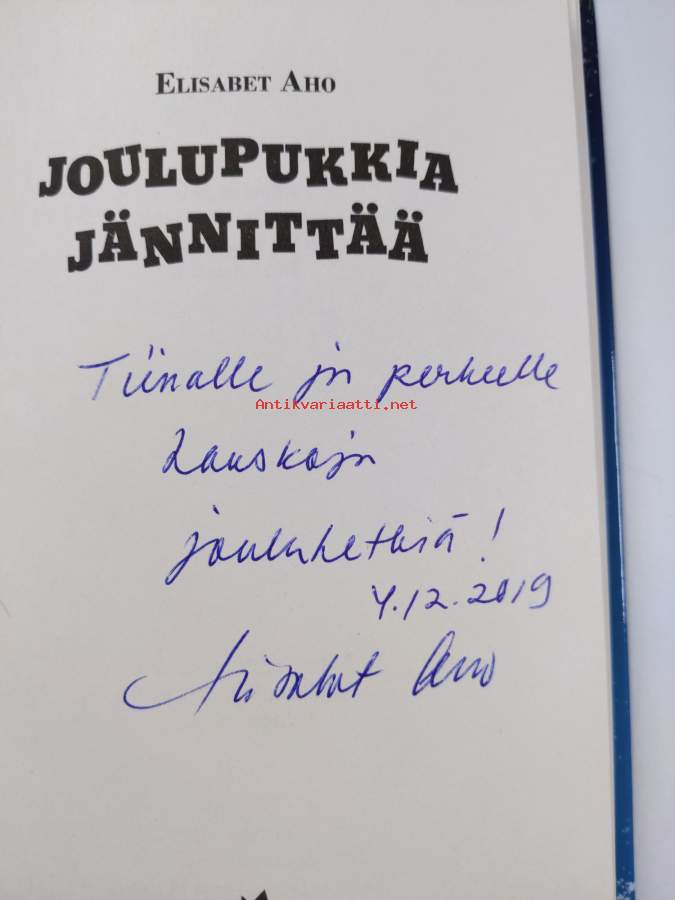 ELISABET AHO
JOULUPUKKIA
JÄNNITTÄÄ
Tiinalle ja perheelle
Antikvariaatti.net
Hauskoja
jouluhetkiä!
4.12.2019
Elisabet Aho